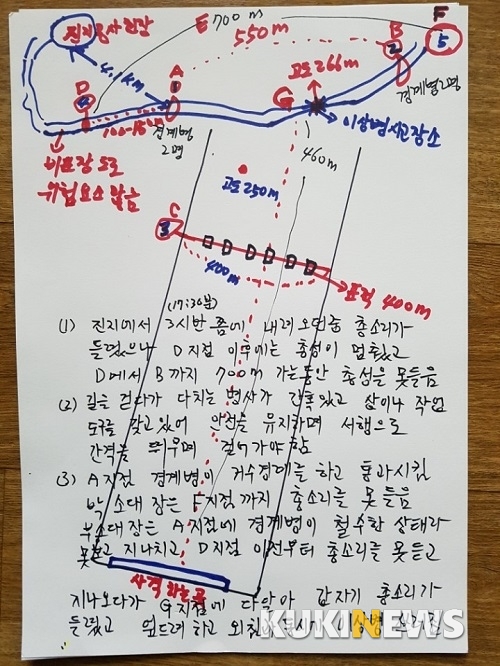 E 700m
F
5
550m
B
2
진지공사현장
4.1km
A
1
D
4
고도266m
G
경계병2명
100-150
경계병
2명
이상병사고장소
비포장 도로
위험요소 많음
460m
고도250m
C
3
400m
표적 400m
(17:30분)
(1) 진지에서 3시반 쯤에 내려 오던중 총소리가
들렸으나 D지점 이후에는 총성이 멈췄고
D에서 B까지 700m 가는동안 총성을 못들음
(2) 길을 걷다가 다치는 병사가 간혹있고 삽이나 작업
도구를 갖고있어 안전을 유지하며 서행으로
간격을 띄우며 걸어가야 함
(3) A지점 경계병이 거수경례를 하고 통과시킴
박소대장은 F지점까지 총소리를 못들음
부소대장은 A지점에 경계병이 철수한 상태라
못보고 지나치고 D지점 이전부터 총소리를 못듣고
사격하는곳
지나오다가 G지점에 다와 갑자기 총소리가
들렸고 엎드려 하고 이상병
KUKINEWS